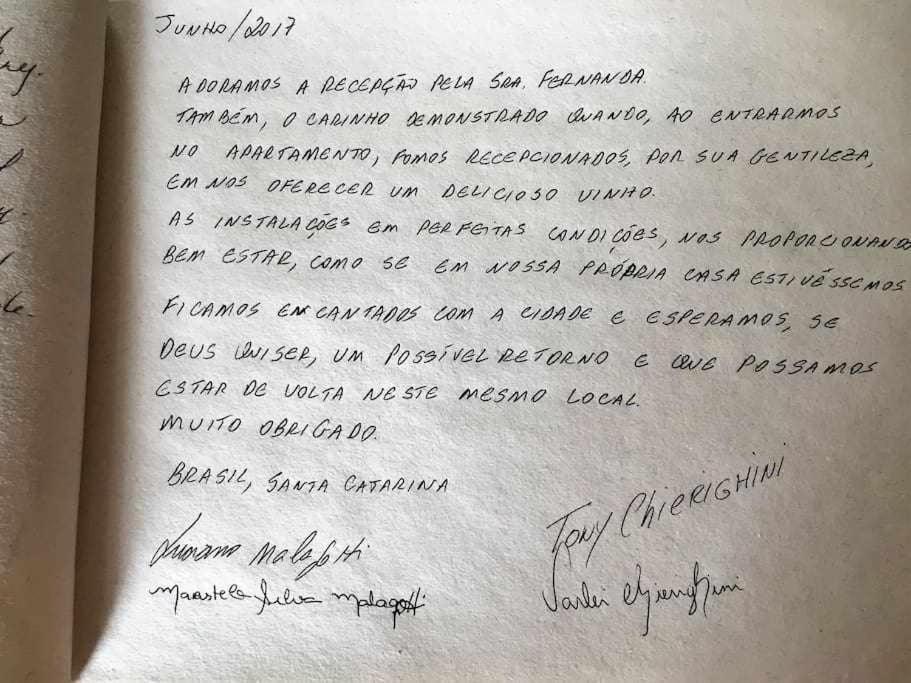 JUNHO/2017
ADORAMOS A RECEPÇÃO PELA SRA. FERNANDA.
TAMBÉM, O CARINHO DEMONSTRADO QUANDO, AO ENTRARMOS
NO APARTAMENTO, FOMOS RECEPCIONADOS, POR SUA GENTILEZA,
EM NOS OFERECER UM DELICIOSO VINHO.
AS INSTALAÇÕES EM PERFEITAS CONDIÇÕES, NOS PROPORCIONANDO
BEM ESTAR, COMO SE EM NOSSA PRÓPRIA CASA ESTIVÉSSEMOS
FICAMOS ENCANTADOS COM A CIDADE E ESPERAMOS, SE
DEUS QUISER, UM POSSÍVEL RETORNO E QUE POSSAMOS
ESTAR DE VOLTA NESTE MESMO LOCAL.
MUITO OBRIGADO.
BRASIL, SANTA CATARINA
TONY CHIERIGHINI
Luciano Malagotti
Silva Malagotti
Chierighini